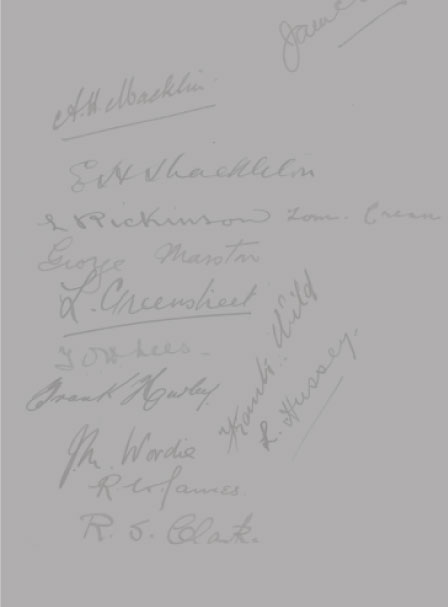 A. H. Macklin
E H Shackleton
L Rickinson Tom. Crean
George Marston
L. Greenstreet
T. O. H. Lees.
Frank Hurley.
Frank. Wild
L. Hussey.
J. M. Wordie
R. W. James.
R. S. Clark.